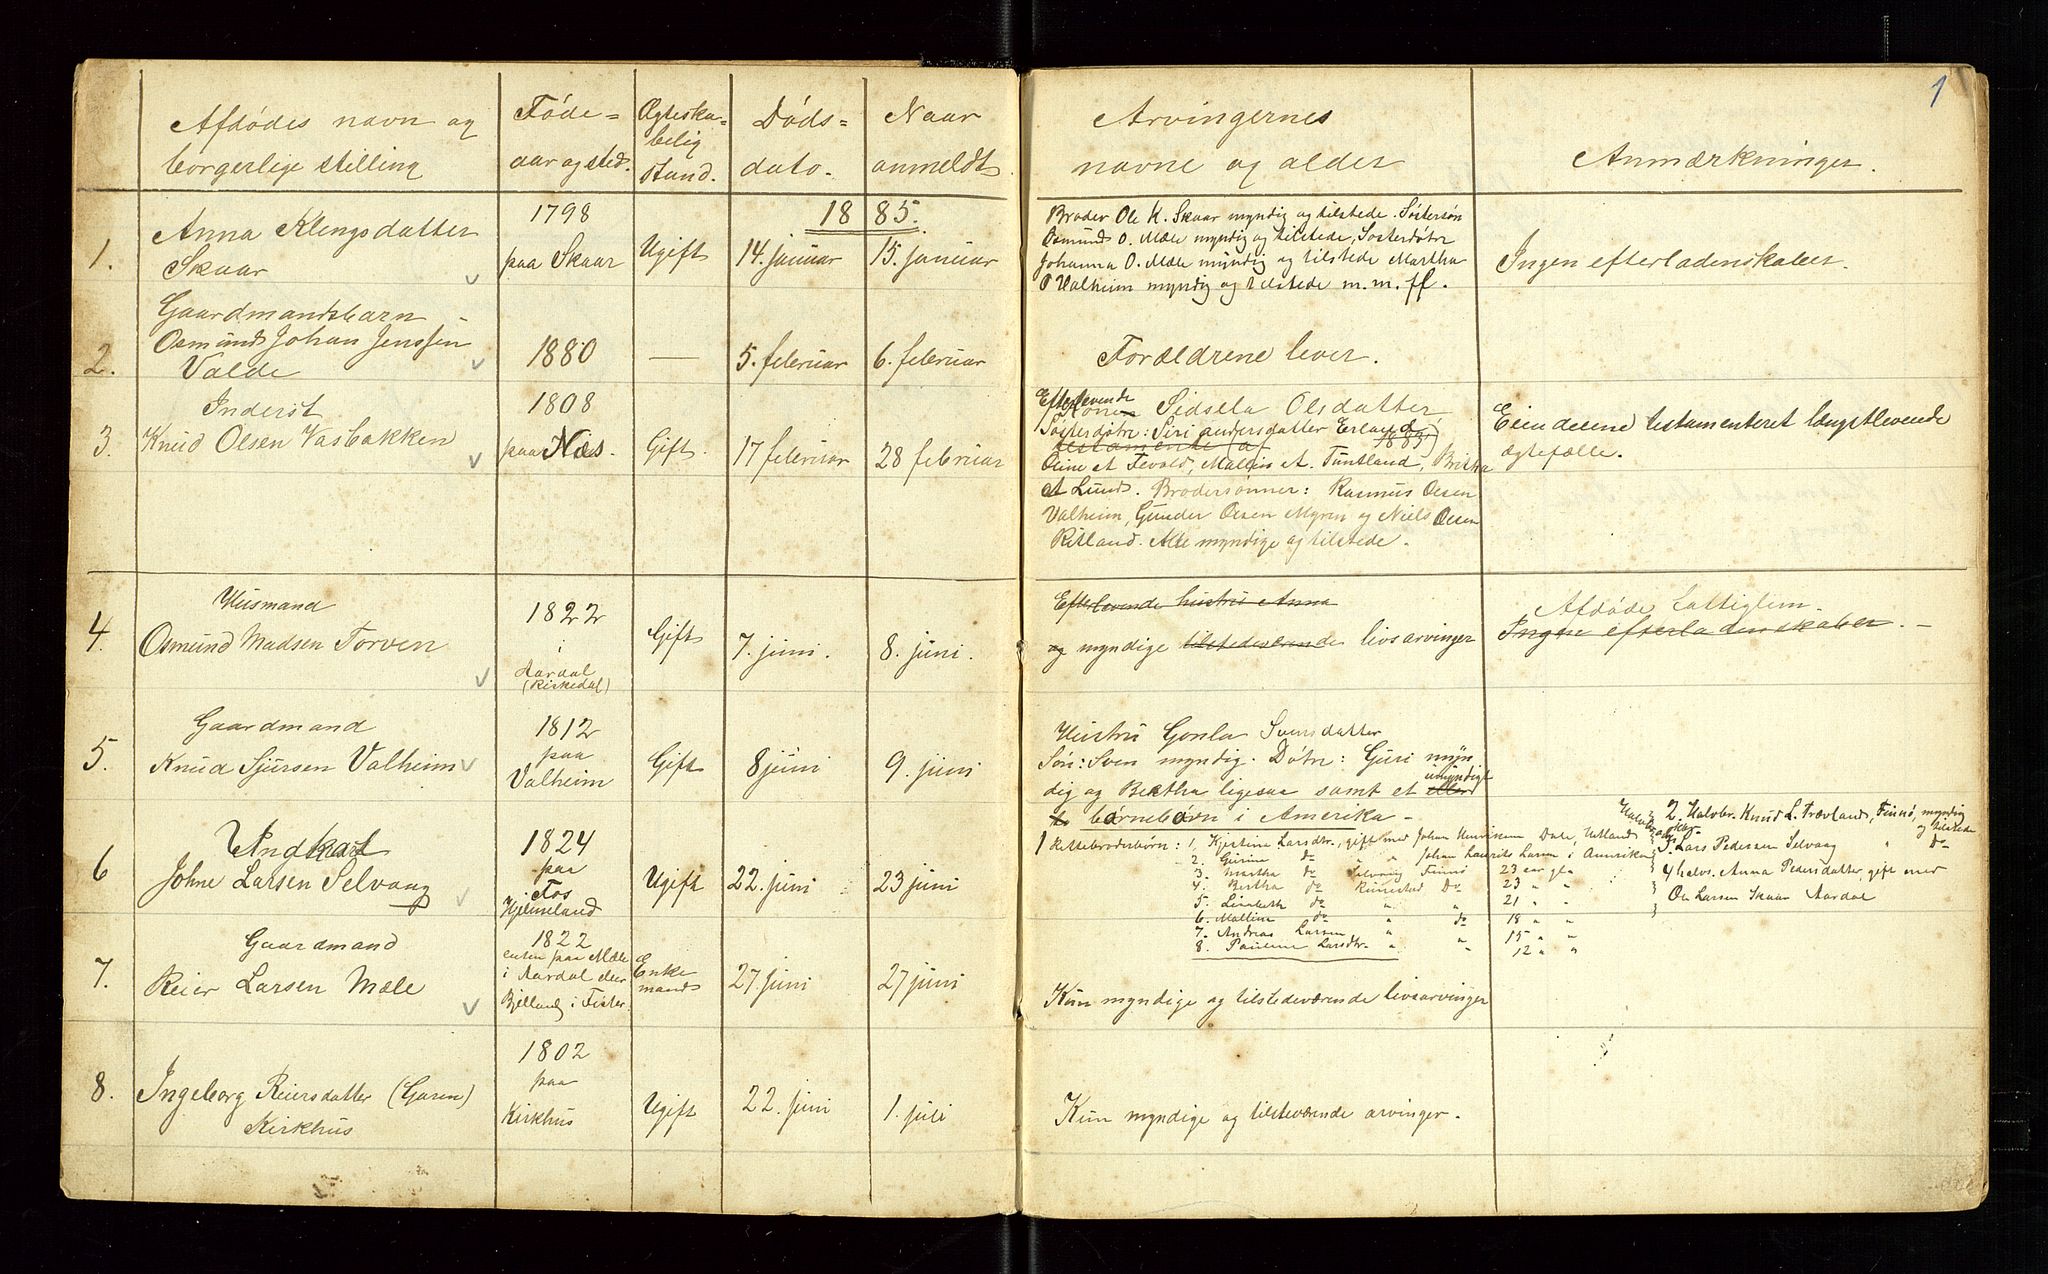 1
Afdödes navn og
borgerlige stilling
Föde=
aar og sted.
Ogteska=
belig
stand.
Döds=
dato.
Naar
anmeldt.
Arvingernes
navne og alder
Anmærkninger.
1885.
1.
Anna Klengsdatter
Skaar
1798
paa Skaar
Ugift
14. januar
15. januar
Broder Ole K. Skaar myndig og tilstede. Söstersön
Osmund O. Mæle myndig og tilstede, Sösterdötre
Johanna O. Mæle myndig og tilstede Martha
O Valheim myndig og tilstede m.m. ff.
Ingen efterladenskaber.
2.
Gaardmandsbarn
Osmund Johan Jenssen
Valde
1880
—
5. februar
6. februar
Forældrene lever.
3.
Inderst
Knud Olsen Vasbakken
1808
paa Næs.
Gift.
17 februar
28 februar
Efterlevende
Kone Sidsela Olsdatter
Sösterdötre: Siri Andersdatter Erland
testamente 1883
Oline A Tevold, Mallin A. Tuntland, Britha
A Lund. Brodersönner: Rasmus Olsen
Valheim, Gunder Olsen Myren og Niels Olsen
Ritland. Alle myndige og tilstede.
Eiendelene testamenteret længstlevende
ægtefælle.
4.
Husmand
Osmund Madsen Torven
1822
i
Aardal
(Kirkedal)
Gift
7. juni.
8. juni.
Efterlevende hustru Anna
og myndige tilstedeværende livsarvinger
Afdöde fattiglem.
Ingen efterladenskaber. —
5.
Gaardmand
Knud Sjursen Valheim
1812
paa
Valheim
Gift
8 juni
9. juni
Hustru Gonla Svensdatter
Sön: Sven myndig. Dötre: Guri myn
dig og Bertha ligesaa samt et umyndigt
börnebörn i Amerika —
6
Indkost
Johne Larsen Selvaag
1824
paa
Fos
Hjelmeland
Ugift
22. juni
23 juni
1 Rettebroderbörn: 1, Kjestine Larsdtr., gift med Johan Henriksen Dale, Hetland
2. Gurine do " " Johan Laurits Larsen i Amerika
3. Martha do Selvaag Finnö 23 aar gl.
4. Bertha do Rimestad do 23 " "
5. Lisabeth do " " 21 " "
6. Malline do " do 18 " "
7. Andreas Larsen " " 15 " "
8. Pauline Larsdtr. " " 12 " "
2. Halvbr. Knud L. Trævland, Finnö, myndig
og tilstede
3. Lars Pedersen Selvaag " do
4 halvs. Anna Pedersdatter, gift med
Ole Larsen Skaar Aardal
7.
Gaardmand
Reier Larsen Mæle
1822
enten paa Mæle
i Aardal eller
Bjelland i Fister.
Enke
mand
27. juni
27 juni
Kun myndige og tilstedeværende livsarvinger
8.
Ingeborg Reiersdatter (Garen)
Kirkhus
1802
paa
Kirkhus
Ugift
22. juni
1. juli
Kun myndige og tilsteværende arvinger.